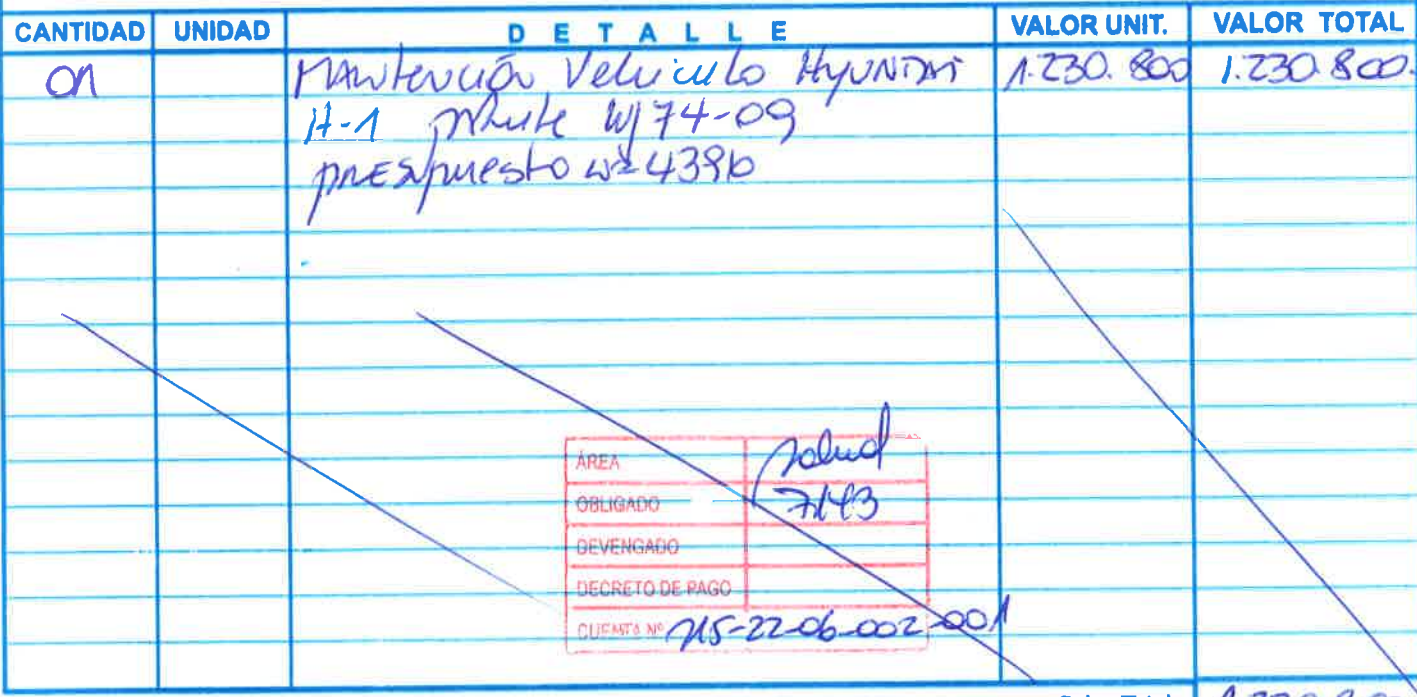 CANTIDAD UNIDAD DETALLE VALOR UNIT. VALOR TOTAL
01 Mantención Vehiculo Hyundai 1.230.800 1.230.800.
H-1 WJ 74-09
presupuesto Nº 4396
ÁREA Salud
OBLIGADO 7143
DEVENGADO
DECRETO DE PAGO
CUENTA Nº 215-22-06-002-001